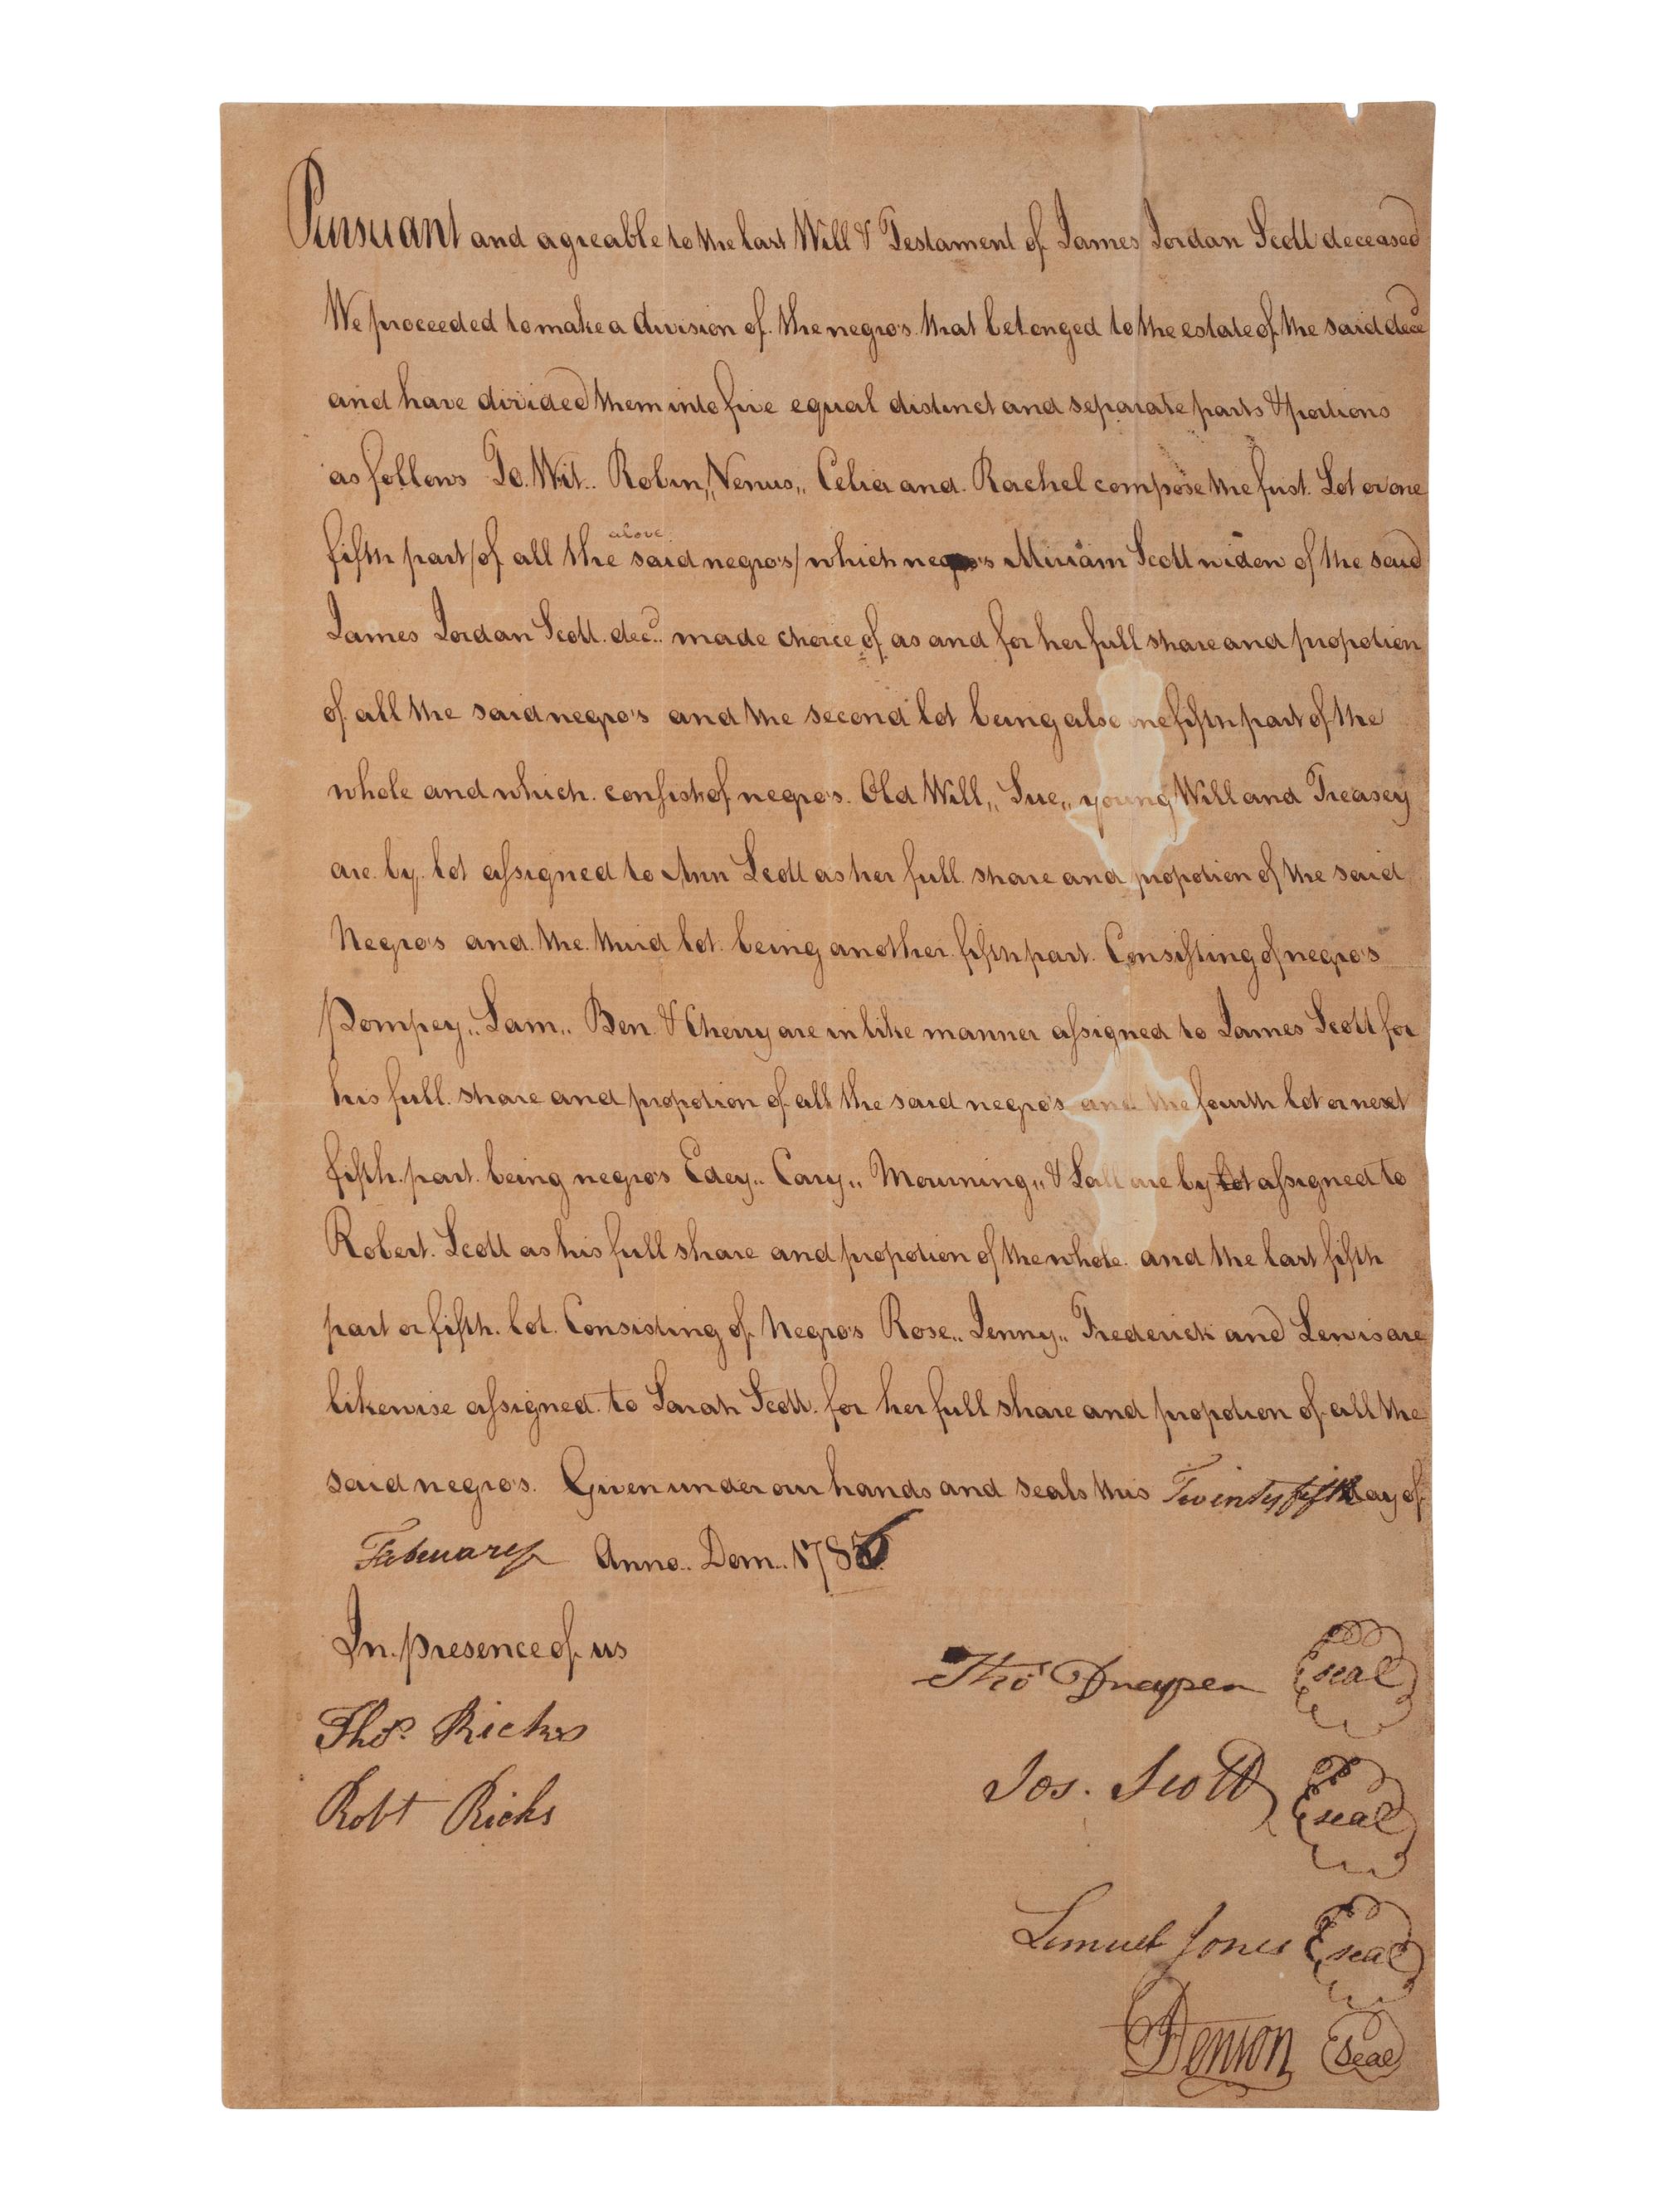 Pursuant and agreable to the last Will & Testament of James Jordan Scott deceased
We proceeded to make a division of the negro's that belonged to the estate of the said dece
and have divided them into five equal distinct and separate parts & portions
as follows To.Wit.. Robin,, Venus,, Celia and Rachel compose the first Lot or one
above
fifth part/of all the said negro's/ which negro's Miriam Scott widow of the said
James Jordan Scott decd. made choice of as and for her full share and propotion
of all the said negro's and the second lot being also one fifth part of the
whole and which consist of negro's Old Will,, Sue,, young Will and Treasey
are by lot assigned to Ann Scott as her full share and propotion of the said
Negro's and the third lot being another fifth part Consisting of negro's
Pompey,, Sam,, Ben & Cherry are in like manner assigned to James Scott for
his full share and propotion of all the said negro's and the fourth lot or next
fifth part being negro's Edey,, Cary,, Mourning,, & Sall are by lot assigned to
Robert Scott as his full share and propotion of the whole and the last fifth
part or fifth lot Consisting of Negro's Rose,, Jenny,, Frederick and Lewis are
likewise assigned to Sarah Scott for her full share and propotion of all the
said negro's. Given under our hands and seals this Twinty fifth day of
Februarey Anno.. Dom.. 1786
In presence of us
Thos Draper seal
Thos. Ricks
Jos. Scott seal
Robt Ricks
Lemuel Jones seal
Denson Seal